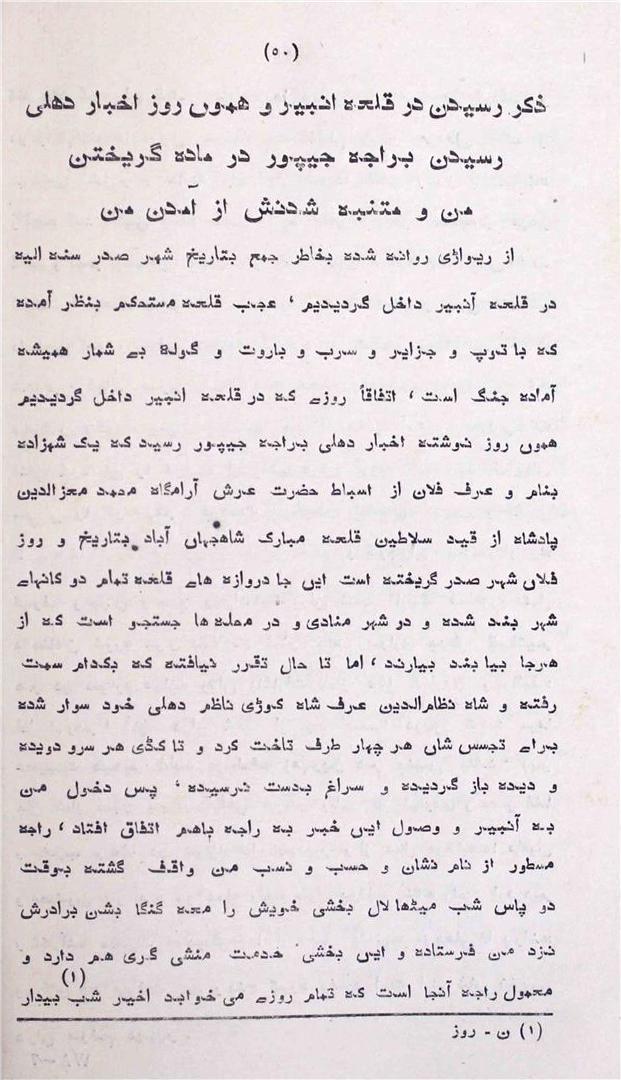 (۵۰)
ذکر رسیدن در قلعه انبیر و همون روز اخبار دهلی
رسیدن براجه جیپور در ماده گریختن
من و متنبه شدنش از آمدن من
از ریواڑی روانه شده بخاطر جمع بتاریخ شهر صدر سنه الیه
در قلعه آنبیر داخل گردیدیم، عجب قلعه مستحکم بنظر آمده
که با توپ و جزایر و سرب و باروت و گوله بے شمار همیشه
آماده جنگ است، اتفاقاً روزے که در قلعه انبیر داخل گردیدیم
همون روز نوشته اخبار دهلی براجه جیپور رسید که یک شهزاده
بنام و عرف فلان از اسباط حضرت عرش آرامگاه محمد معزالدین
پادشاه از قید سلاطین قلعه مبارک شاهجهاں آباد بتاریخ و روز
فلاں شهر صدر گریخته است ایں جا دروازه هاے قلعه تمام دو کانهاے
شهر بند شده و دو شهر منادی و در محله ها جستجو است که از
هرجا بیا بند بیارند، اما تا حال تقرر نیافته که بکدام سمت
رفته و شاه نظام‌الدین عرف شاه کوڑی ناظم دهلی خود سوار شده
براے تجسس شاں هر چهار طرف تاخت کرد و تا کڈی هر سرو دویده
و دیده باز گردیده و سراغ بدست نرسیده، پس دخول من
به آنبیر و وصول ایں خبر به راجه باهم اتفاق افتاد، راجه
مسطور از نام نشان و حسب و نسب من واقف گشته بوقت
دو پاس شب میٹها لال بخشی خویش را معه گنگا بشن برادرش
نزد من فرستاده و ایں بخشی خدمت منشی گری هم دارد و
معمول راجه آنجا است که تمام روزے (۱) می خوابد اخیر شب بیدار
(۱) ن - روز